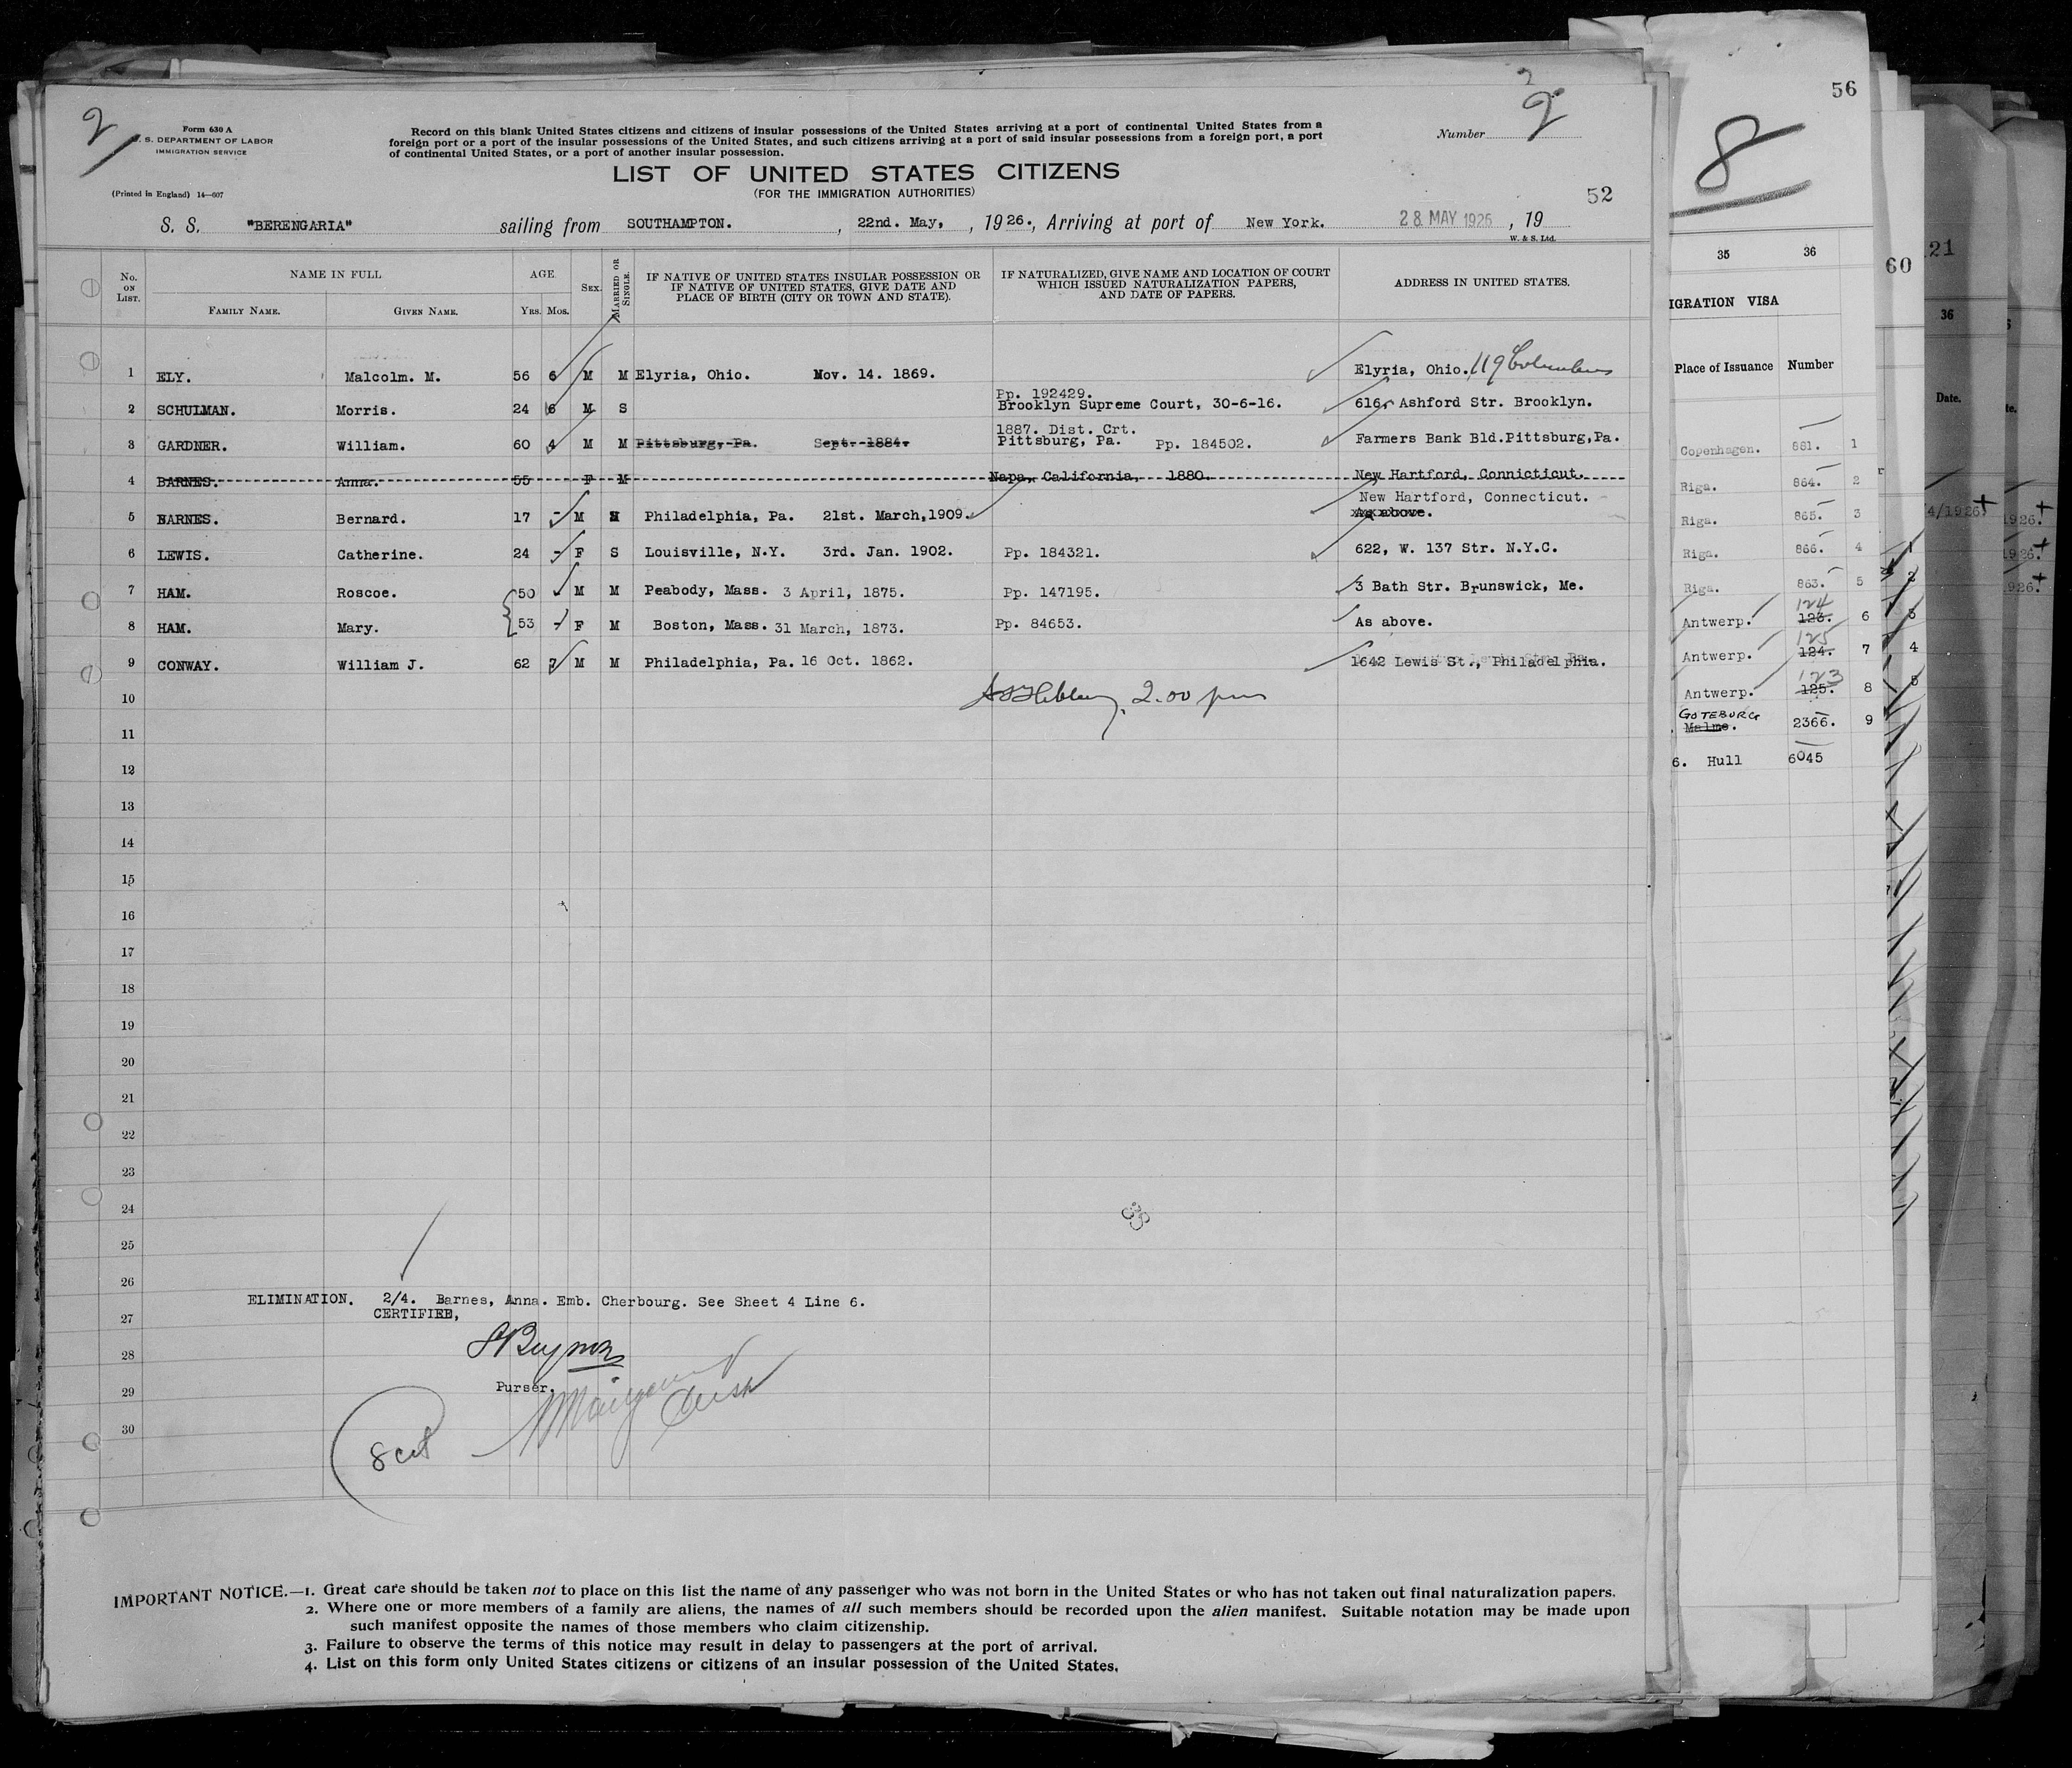 2
2
2
Form 630 A
U. S. DEPARTMENT OF LABOR
IMMIGRATION SERVICE
(Printed in England) 14—607
Record on this blank United States citizens and citizens of insular possessions of the United States arriving at a port of continental United States from a
foreign port or a port of the insular possessions of the United States, and such citizens arriving at a port of said insular possessions from a foreign port, a port
of continental United States, or a port of another insular possession.
Number
LIST OF UNITED STATES CITIZENS
(FOR THE IMMIGRATION AUTHORITIES)
52
S. S. "BERENGARIA" sailing from SOUTHAMPTON. , 22nd. May, , 1926., Arriving at port of New York. 28 MAY 1926 , 19
W. & S. Ltd.
No. ON LIST. NAME IN FULL AGE. SEX. MARRIED OR SINGLE. IF NATIVE OF UNITED STATES INSULAR POSSESSION OR IF NATIVE OF UNITED STATES, GIVE DATE AND PLACE OF BIRTH (CITY OR TOWN AND STATE). IF NATURALIZED, GIVE NAME AND LOCATION OF COURT WHICH ISSUED NATURALIZATION PAPERS, AND DATE OF PAPERS. ADDRESS IN UNITED STATES.
FAMILY NAME. GIVEN NAME. YRS. MOS.
1 ELY. Malcolm. M. 56 6 M M Elyria, Ohio. Nov. 14. 1869. Elyria, Ohio. 119 Columbus
Pp. 192429.
2 SCHULMAN. Morris. 24 6 M S Brooklyn Supreme Court, 30-6-16. 616, Ashford Str. Brooklyn.
1887. Dist. Crt.
3 GARDNER. William. 60 4 M M Pittsburg, Pa. Sept. 1884. Pittsburg, Pa. Pp. 184502. Farmers Bank Bld.Pittsburg,Pa.
4 BARNES. Anna. 55 F M Napa, California, 1880. New Hartford, Connicticut.
New Hartford, Connecticut.
5 BARNES. Bernard. 17 - M S Philadelphia, Pa. 21st. March,1909. As above.
6 LEWIS. Catherine. 24 - F S Louisville, N.Y. 3rd. Jan. 1902. Pp. 184321. 622, W. 137 Str. N.Y.C.
7 HAM. Roscoe. 50 M M Peabody, Mass. 3 April, 1875. Pp. 147195. 3 Bath Str. Brunswick, Me.
8 HAM. Mary. 53 - F M Boston, Mass. 31 March, 1873. Pp. 84653. As above.
9 CONWAY. William J. 62 7 M M Philadelphia, Pa. 16 Oct. 1862. 1642 Lewis St., Philadelphia.
10 2.00 pm
11
12
13
14
15
16
17
18
19
20
21
22
23
24
25
26
27
28
29
30
33
ELIMINATION. 2/4. Barnes, Anna. Emb. Cherbourg. See Sheet 4 Line 6.
CERTIFIED,
Purser.
8 cit
IMPORTANT NOTICE.—1. Great care should be taken not to place on this list the name of any passenger who was not born in the United States or who has not taken out final naturalization papers.
2. Where one or more members of a family are aliens, the names of all such members should be recorded upon the alien manifest. Suitable notation may be made upon
such manifest opposite the names of those members who claim citizenship.
3. Failure to observe the terms of this notice may result in delay to passengers at the port of arrival.
4. List on this form only United States citizens or citizens of an insular possession of the United States.
56
8
35 36
IGRATION VISA
Place of Issuance Number
Copenhagen. 881. 1
Riga. 864. 2
Riga. 865. 3
Riga. 866. 4
Riga. 863. 5
124
Antwerp. 123. 6
125
Antwerp. 124. 7
123
Antwerp. 125. 8
GOTEBURG
Malmo. 2366. 9
6. Hull 6045
60
1
2
3
4
5
21
36
Date.
4/1926.
te.
1926.
1926.
1926.